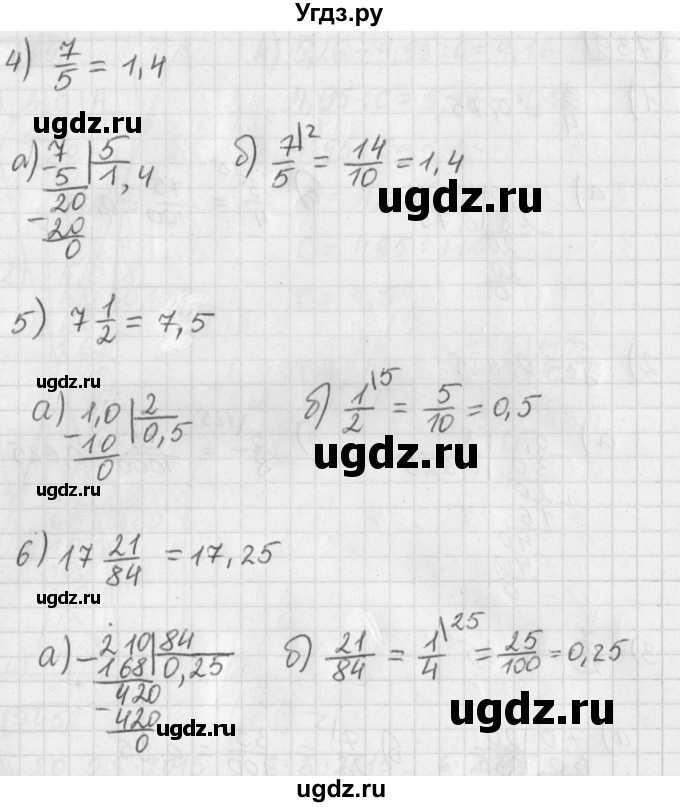 Угдз.ру
4) 7/5 = 1,4
ugdz.ru ugdz.ru
а) 7 | 5 б) 7|2/5 = 14/10 = 1,4
- 5 | 1,4
20 ugdz.ru
- 20
0
5) 7 1/2 = 7,5
ugdz.ru
а) 1,0 | 2 б) 1|5/2 = 5/10 = 0,5
- 10 | 0,5
0 ugdz.ru
ugdz.ru
6) 17 21/84 = 17,25
ugdz.ru
а) - 210 | 84 б) 21/84 = 1|25/4 = 25/100 = 0,25
168 | 0,25
420 ugdz.ru
- 420
0 ugdz.ru
ugdz.ru